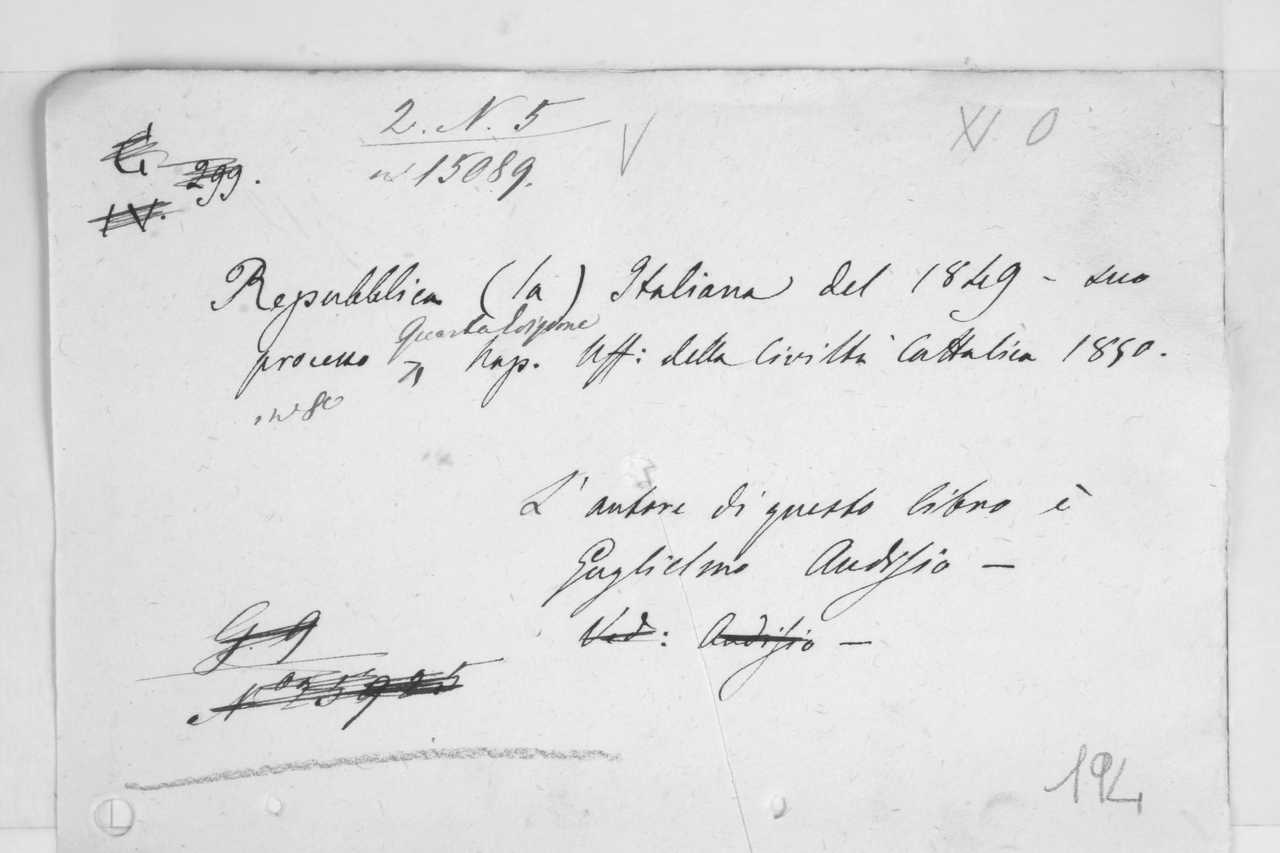 2. N. 5
n° 15089.
V
XV 0
G. 299.
IV.
Repubblica (la) Italiana del 1849 - suo
Quarta Edizione
processo Nap. Uff: della Civiltà Cattolica 1850.
in 8°
L'autore di questo libro è
Guglielmo Audisio —
Ved: Audisio —
G. 9
194
L